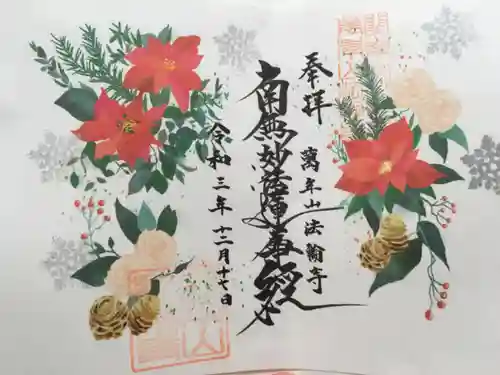 奉拝
萬年山法輪寺
南無妙法蓮華経
令和三年十二月十七日